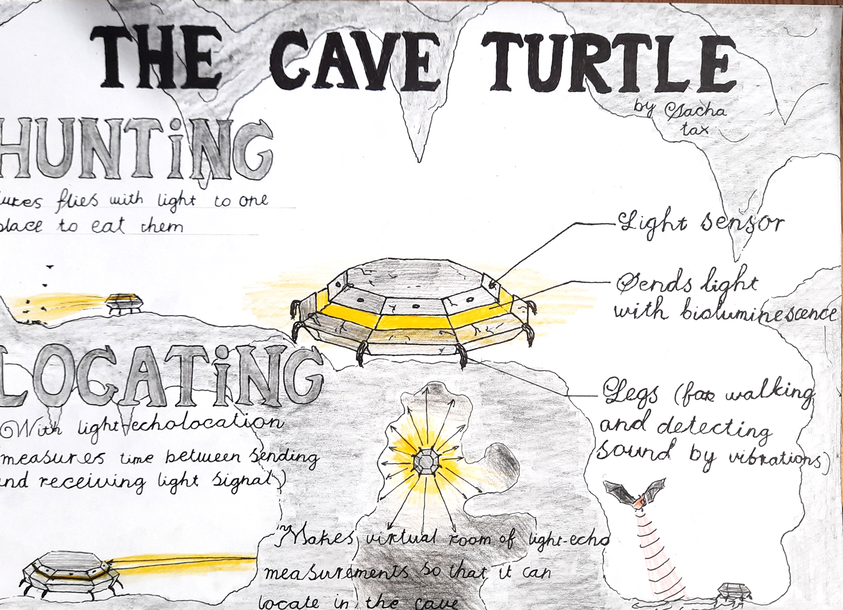 THE CAVE TURTLE
by Sacha
tax
HUNTiNG
flies with light to one
place to eat them
Light sensor
Sends light
with bioluminescence
Legs (for walking
and detecting
sound by vibrations)
LOCATiNG
(With light-echolocation
measures time between sending
and receiving light signal)
Makes virtual room of light-echo
measurements so that it can
locate in the cave